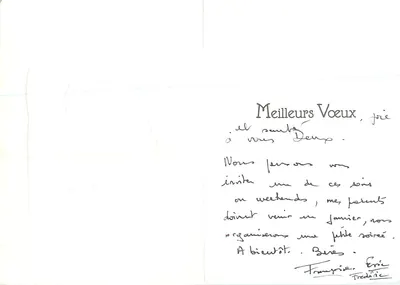 Meilleurs Vœux, joie
et santé
à vous Deux.
Nous pensons vous
inviter un de ces soirs
ou weekends, mes parents
doivent venir en janvier, nous
organiserons une petite soirée.
A bientôt. Bises.
Françoise Eric
Frédéric